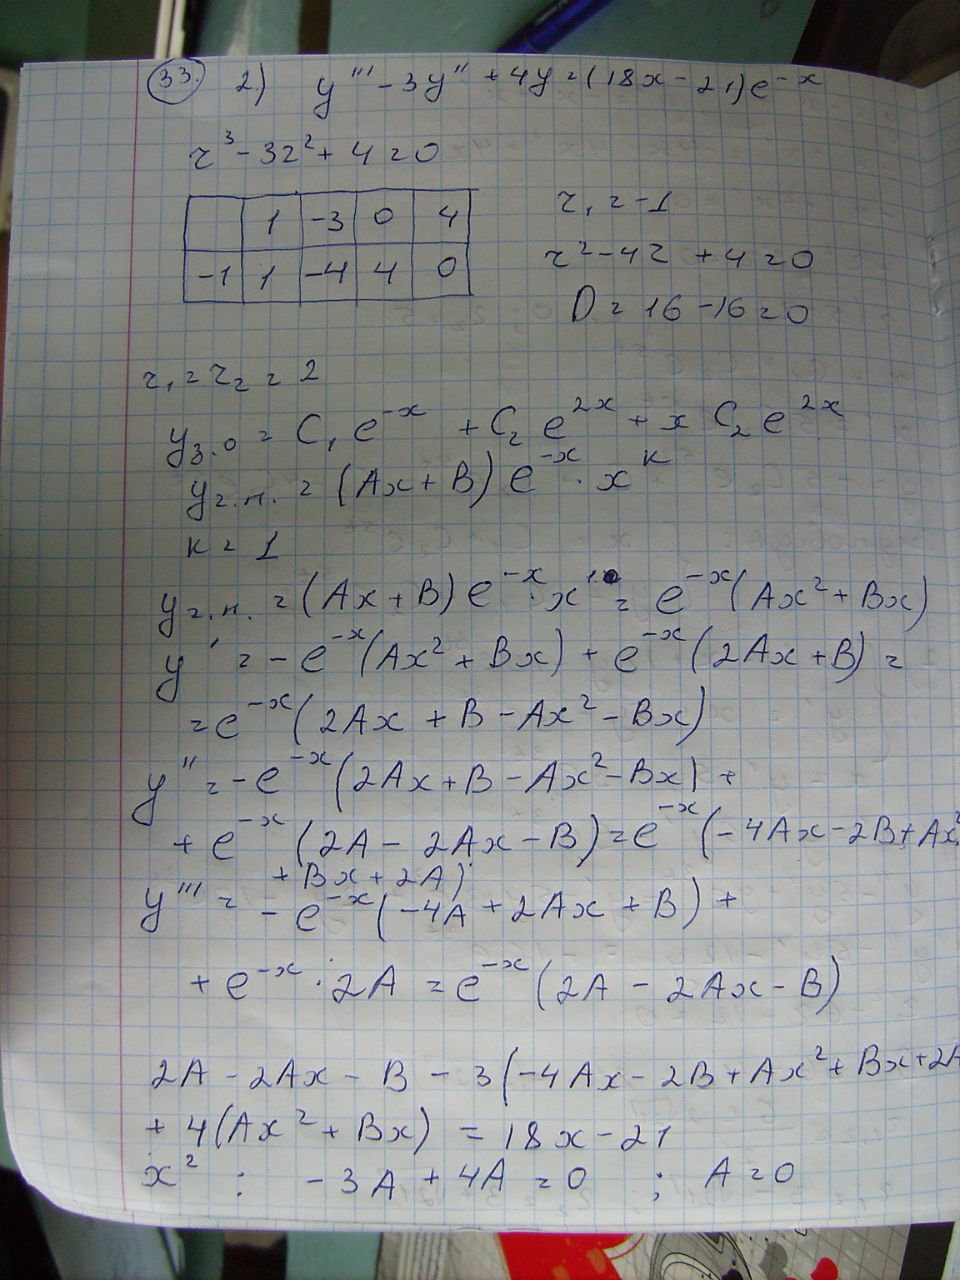 33. 2) y''' - 3y'' + 4y = (18x - 21)e^{-x}
r^3 - 3r^2 + 4 = 0
1 -3 0 4
-1 1 -4 4 0
r_1 = -1
r^2 - 4r + 4 = 0
D = 16 - 16 = 0
r_1 = r_2 = 2
y_{з.о} = C_1 e^{-x} + C_2 e^{2x} + x C_2 e^{2x}
y_{г.н.} = (Ax + B) e^{-x} · x^k
k = 1
y_{г.н.} = (Ax + B) e^{-x} · x^1 = e^{-x}(Ax^2 + Bx)
y' = -e^{-x}(Ax^2 + Bx) + e^{-x}(2Ax + B) =
= e^{-x}(2Ax + B - Ax^2 - Bx)
y'' = -e^{-x}(2Ax + B - Ax^2 - Bx) +
+ e^{-x}(2A - 2Ax - B) = e^{-x}(-4Ax - 2B + Ax^2
+ Bx + 2A)
y''' = -e^{-x}(-4A + 2Ax + B) +
+ e^{-x} · 2A = e^{-x}(2A - 2Ax - B)
2A - 2Ax - B - 3(-4Ax - 2B + Ax^2 + Bx + 2A
+ 4(Ax^2 + Bx) = 18x - 21
x^2 : -3A + 4A = 0 ; A = 0